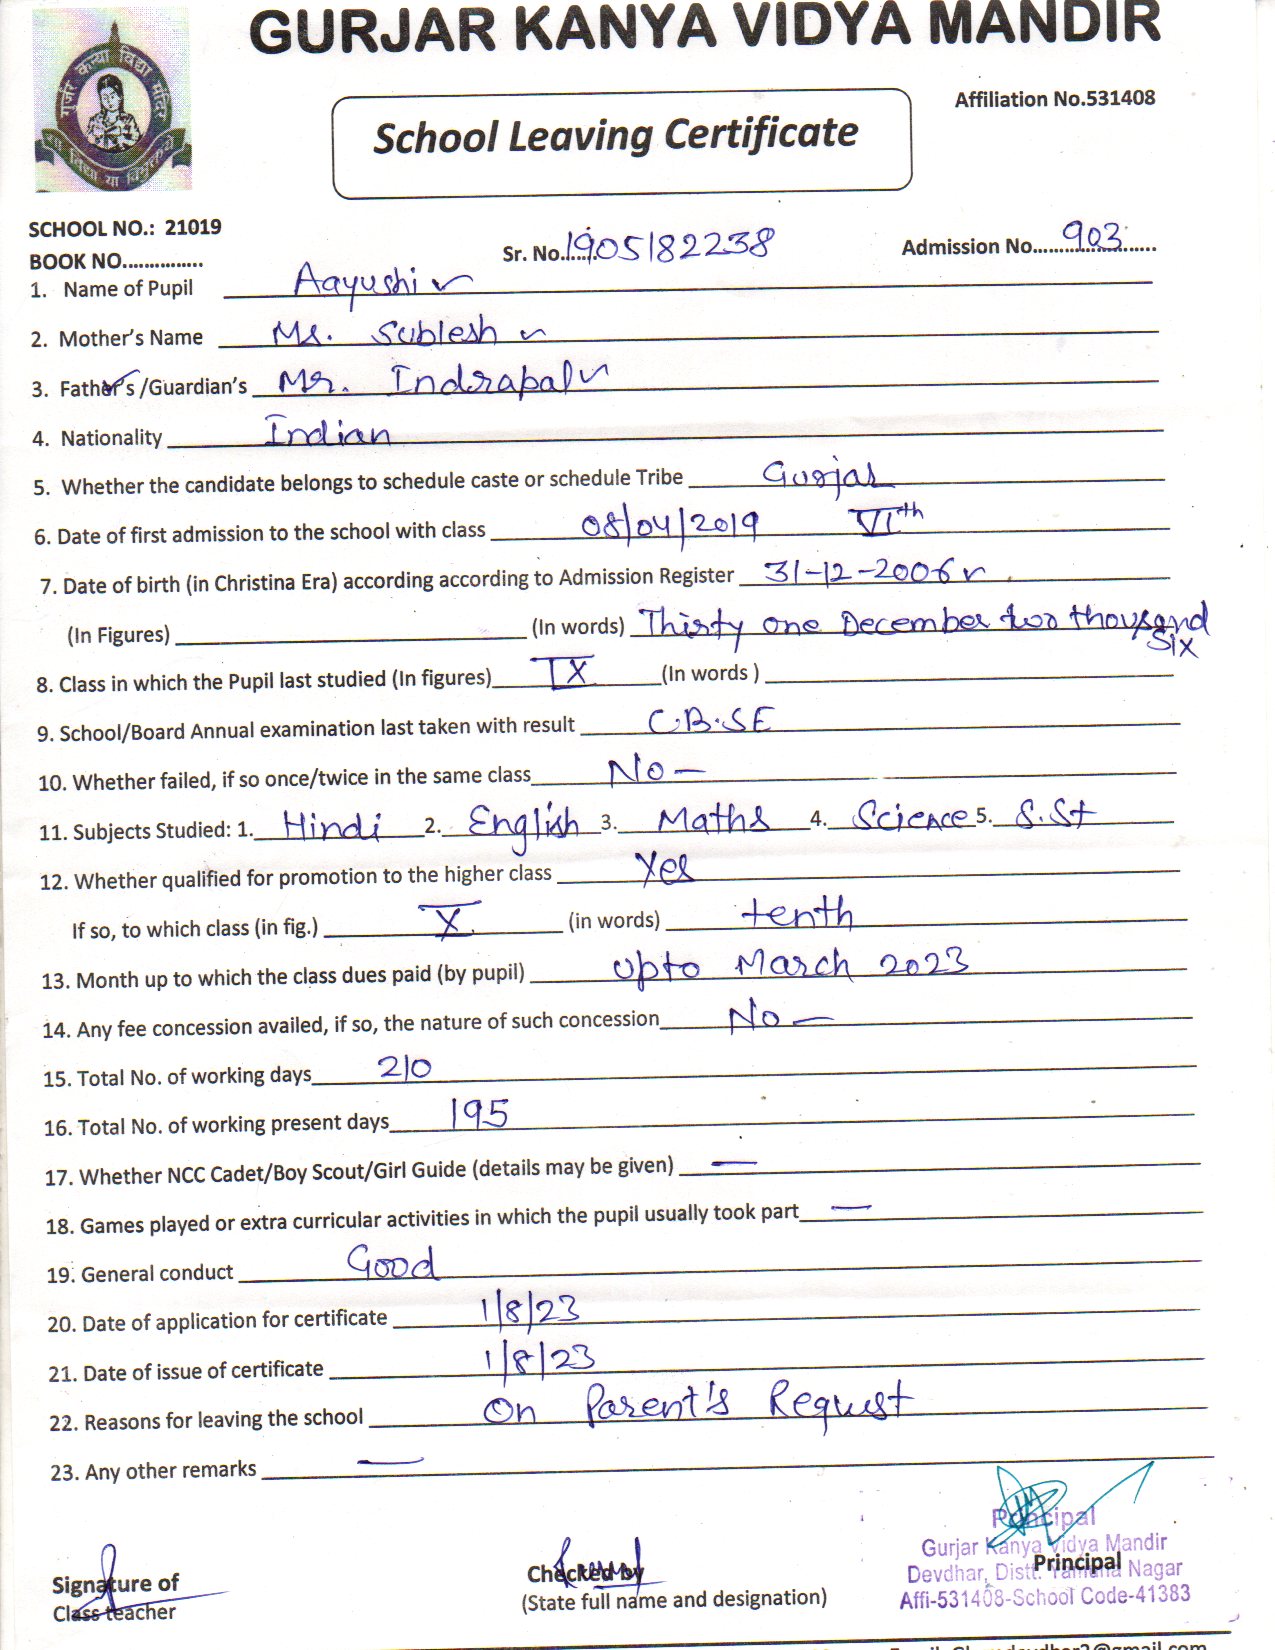 GURJAR KANYA VIDYA MANDIR
गुर्जर कन्या विद्या मंदिर
Affiliation No.531408
School Leaving Certificate
SCHOOL NO.: 21019
BOOK NO............... Sr. No. 1905182238 Admission No. 903
1. Name of Pupil Aayushi
2. Mother's Name Ms. Sublesh
3. Father's /Guardian's Mr. Indrapal
4. Nationality Indian
5. Whether the candidate belongs to schedule caste or schedule Tribe Gurjar
6. Date of first admission to the school with class 08/04/2019 VIth
7. Date of birth (in Christina Era) according according to Admission Register 31-12-2006
(In Figures) (In words) Thirty one December two thousand
six
8. Class in which the Pupil last studied (In figures) IX (In words )
9. School/Board Annual examination last taken with result C.B.SE
10. Whether failed, if so once/twice in the same class No –
11. Subjects Studied: 1. Hindi 2. English 3. Maths 4. Science 5. S.St
12. Whether qualified for promotion to the higher class Yes
If so, to which class (in fig.) X (in words) tenth
13. Month up to which the class dues paid (by pupil) Upto March 2023
14. Any fee concession availed, if so, the nature of such concession No –
15. Total No. of working days 210
16. Total No. of working present days 195
17. Whether NCC Cadet/Boy Scout/Girl Guide (details may be given) –
18. Games played or extra curricular activities in which the pupil usually took part –
19. General conduct Good
20. Date of application for certificate 1/8/23
21. Date of issue of certificate 1/8/23
22. Reasons for leaving the school On Parent's Request
23. Any other remarks –
Principal
Gurjar Kanya Vidya Mandir
Devdhar, Distt. Yamuna Nagar
Affi-531408-School Code-41383
Signature of
Class teacher
Checked by
(State full name and designation)
Principal